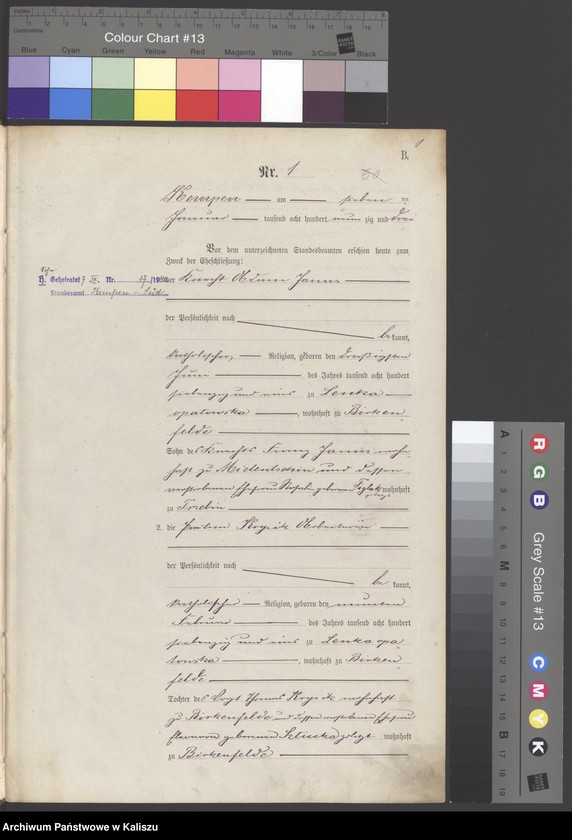 Inches
Centimetres
Colour Chart #13
Blue Cyan Green Yellow Red Magenta White 3/Color Black
B. 1
Nr. 1
Kempen am sieben
Januar tausend acht hundert neunzig und drei
Vor dem unterzeichneten Standesbeamten erschien heute zum
Zweck der Eheschließung:
Knecht Adam Janus
Geheiratet Nr. 17
Standesamt Kempen-Süd
der Persönlichkeit nach
bekannt,
katholischer Religion, geboren den dreißigsten
Juni des Jahres tausend acht hundert
siebenzig und eins zu Lenka
opatowska, wohnhaft zu Birken
felde
Sohn des Knechts Franz Janus wohn
haft zu und dessen
verstorbenen Ehefrau geborenen wohnhaft
zu
2. die Krysik
der Persönlichkeit nach
be kannt,
katholischer Religion, geboren den neunten
Februar des Jahres tausend acht hundert
siebenzig und eins zu Lenka opa
towska, wohnhaft zu Birken
felde
Tochter des Vogt Thomas Krysik wohnhaft
zu Birkenfelde und dessen verstorbenen Ehefrau
geborenen wohnhaft
zu Birkenfelde
Grey Scale #13
A 1 2 3 4 5 6 M 8 9 10 11 12 13 14 15 B 17 18 19
R G B
C M Y K
Archiwum Państwowe w Kaliszu